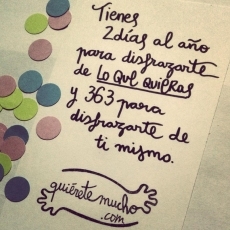 Tienes
2 días al año
para disfrazarte
de LO QUE QUIERAS
y 363 para
disfrazarte de
ti mismo.
quiérete mucho
.com